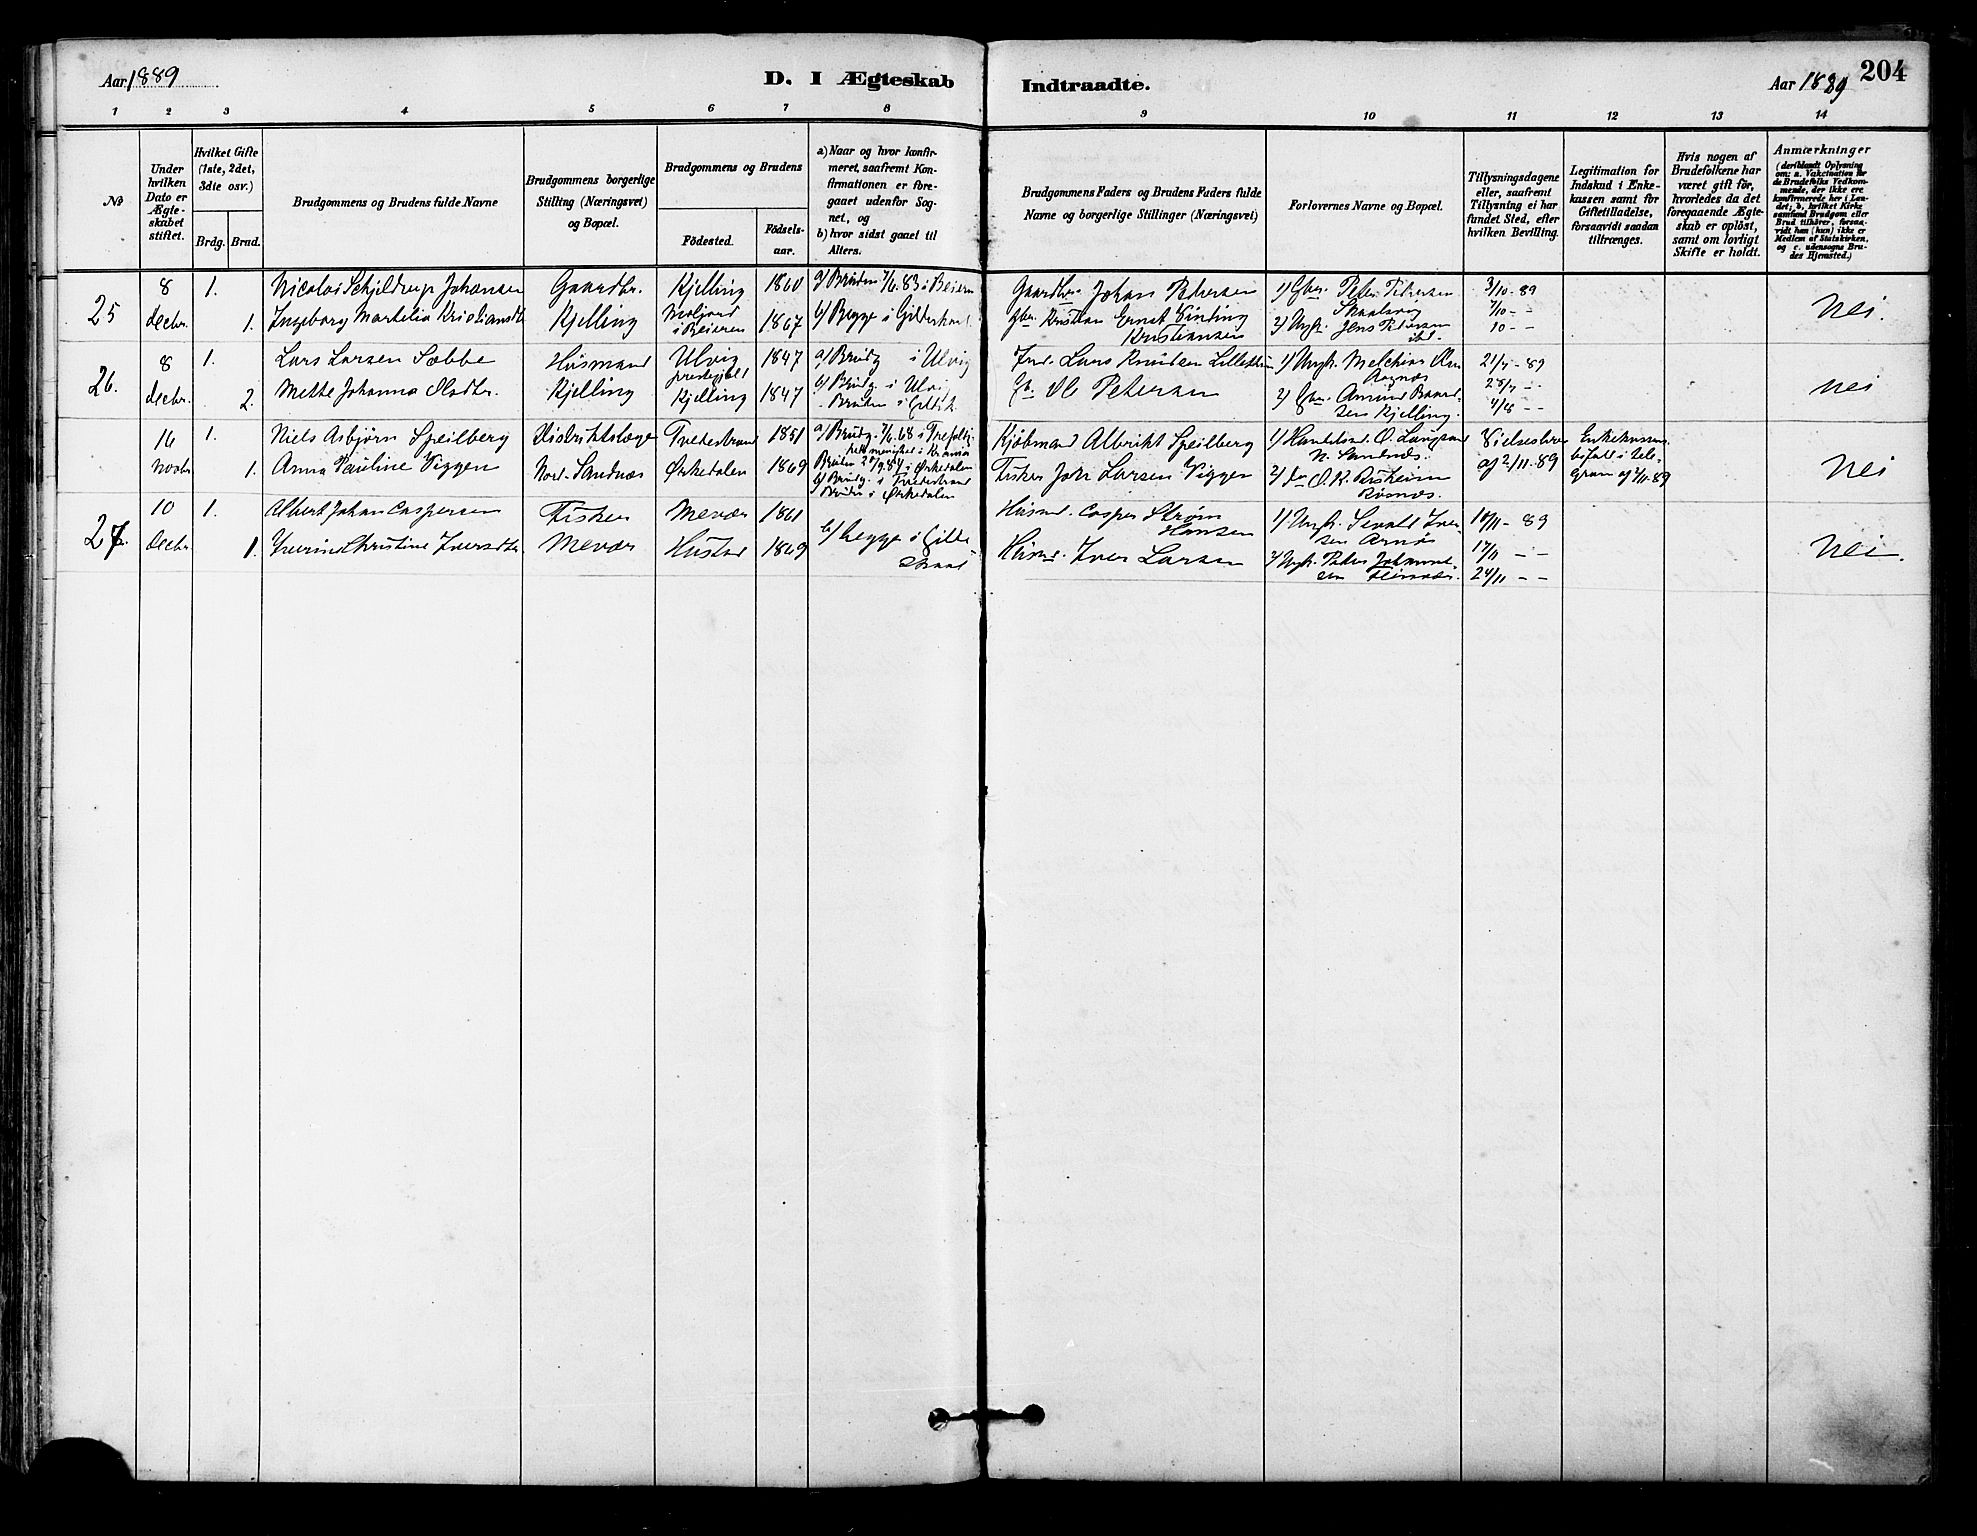 Aar 1889
D. I Ægteskab
Indtraadte.
Aar 1889
204
1 2 3 4 5 6 7 8 9 10 11 12 13 14
No
Under hvilken Dato er Ægteskabet stiftet.
Hvilket Gifte (1ste, 2det, 3die osv.)
Brdg. Brud.
Brudgommens og Brudens fulde Navne
Brudgommens borgerlige Stilling (Næringsvei) og Bopæl.
Brudgommens og Brudens
Födested.
Födselsaar.
a) Naar og hvor konfirmeret, saafremt Konfirmationen er foregaaet udenfor Sognet, og
b) hvor sidst gaaet til Alters.
Brudgommens Faders og Brudens Faders fulde Navne og borgerlige Stillinger (Næringsvei)
Forlovernes Navne og Bopæl.
Tillysningsdagene eller, saafremt Tillysning ei har fundet Sted, efter hvilken Bevilling.
Legitimation for Indskud i Enkekassen samt for Giftetilladelse, forsaavidt saadan tiltrænges.
Hvis nogen af Brudefolkene har været gift för, hvorledes da det foregaaende Ægteskab er oplöst, samt om lovligt Skifte er holdt.
Anmærkninger
(deriblandt Oplysning om: a. Vaccination for de Brudefolks Vedkommende, der ikke ere konfirmerede her i Landet; b. hvilket Kirkesamfund Brudgom eller Brud tilhörer, forsaavidt han (hun) ikke er Medlem af Statskirken, og c. udensogns Brudes Hjemsted.)
25
8 1. Nicolai Schjeldrup Johansen Gaardbr. Kjelling 1860 a) Bruden 7/6 83 i Beiern
Decbr. 1. Ingeborg Martelia Kristiansdtr Kjelling Moljord i Beieren 1867 b) Begge i Gildeskaal.
Gaardbr. Johan Petersen
Gbr. Kristian Ernst Vinding Kristiansen
1) Gbr. Peter Petersen Skaalsvog
2) Ungk. Jens Petersen ibd.
3/10 - 89
7/10 - -
10 - -
Nei.
26.
8 1. Lars Larsen Sæbbe Husmand Ulvig prestegjeld 1847 a) Brudg. i Ulvig
Decbr. 2. Mette Johanna Olsdtr. Kjelling Kjelling 1847 b) Brudg. i Ulvig
Bruden i Gildsk.
Ind. Lars Knudsen
Gb. Ol Petersen
1) Ungk. Melchior
2) Gbr. Amund Kjelling.
21/7 - 89
28/7 - -
4/8 - -
Nei
16 1. Niels Asbjørn Speilberg Distriktslæge Tvedestrand 1851 a) Brudg. 7/6 68 i Trefoldighetsmenighet i Kr.ania
Novbr. 1. Anna Pauline Viggen Nord-Sandnæs Ørkedalen 1869 Bruden 28/9 84 i Ørkedalen
b) Brudg. i Tvedestrand
Bruden i Ørkedalen
Kjøbmand Albrikt Speilberg
Fisker Joh. Larsen Viggen
1) Handelsmd. O. Langsand N. Sandnæs.
2) Do O. K. Risheim
Vielsesbrev
af 2/11 - 89
Enkekassen
befalt i telegram af 2/11-89
Nei
27.
10 1. Albert Johan Caspersen Fisker Mevær 1861
Decbr. 1. Iverine Christine Iversdtr. Mevær Hustad 1869 b) begge i Gildeskaal
Husmd. Casper Strøm Hansen
Husmd. Iver Larsen
1) Ungk. Sevald Iversen Arnøs
2) Ungk. Peder
10/11 - 89
17/11 - -
24/11 - -
Nei.